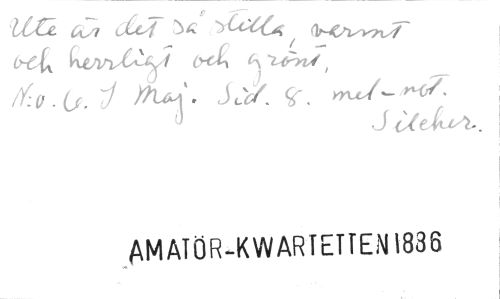 Ute är det så stilla, varmt
och herrligt och grönt,
N:o. 6. I Maj. Sid. 8. mel-not.
Silcher.
AMATÖR-KWARTETTEN 1886